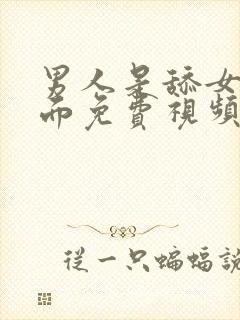 男人舔女
而免費視頻
從一只蝙蝠說